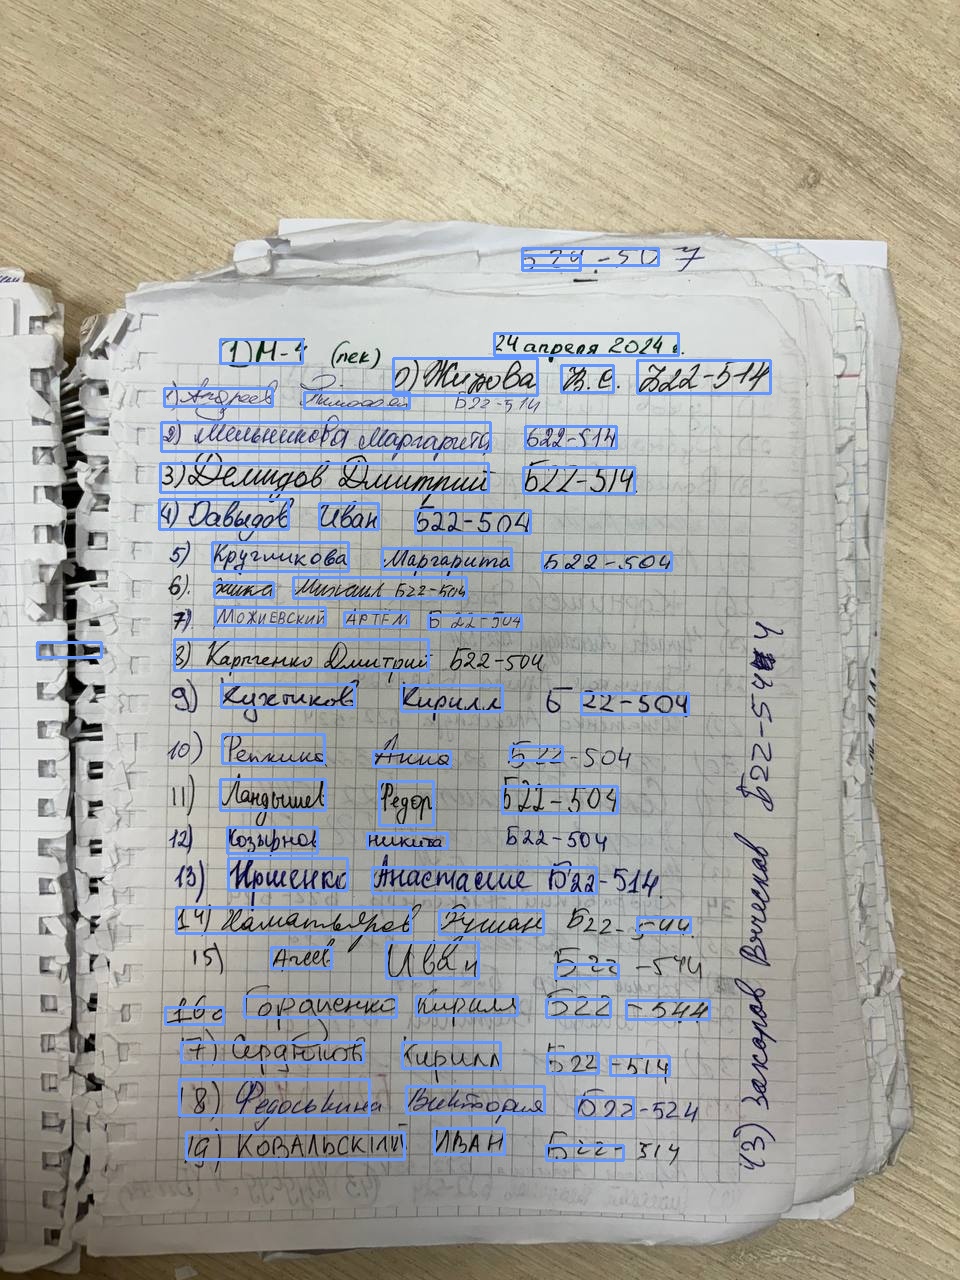 Б24-507
1) М-4 (лек) 24 апреля 2024 г.
0) Жирова В.С. Б22-514
1) Андреев Тимофей Б22-514
2) Мельникова Маргарита Б22-514
3) Демидов Дмитрий Б22-514
4) Давыдов Иван Б22-504
5) Кругликова Маргарита Б22-504
6). Зайка Михаил Б22-504
7) МОЖИЕВСКИЙ АРТЕМ Б22-504
8) Карпенко Дмитрий Б22-504
9) Кирилл Б22-504
10) Репкина Анна Б22-504
11) Ландышев Федор Б22-504
12) Козырнов никита Б22-504
13) Ищенко Анастасия Б22-514
14) Хаматьяров Рушан Б22-544
15) Агеев Иван Б22-544
16. Борщенко Кирилл Б22-544
17) Сердюков Кирилл Б22-514
18) Федоськина Виктория Б22-524
19) КОВАЛЬСКИЙ ИВАН Б22-514
43) Захаров Вячеслав Б22-544